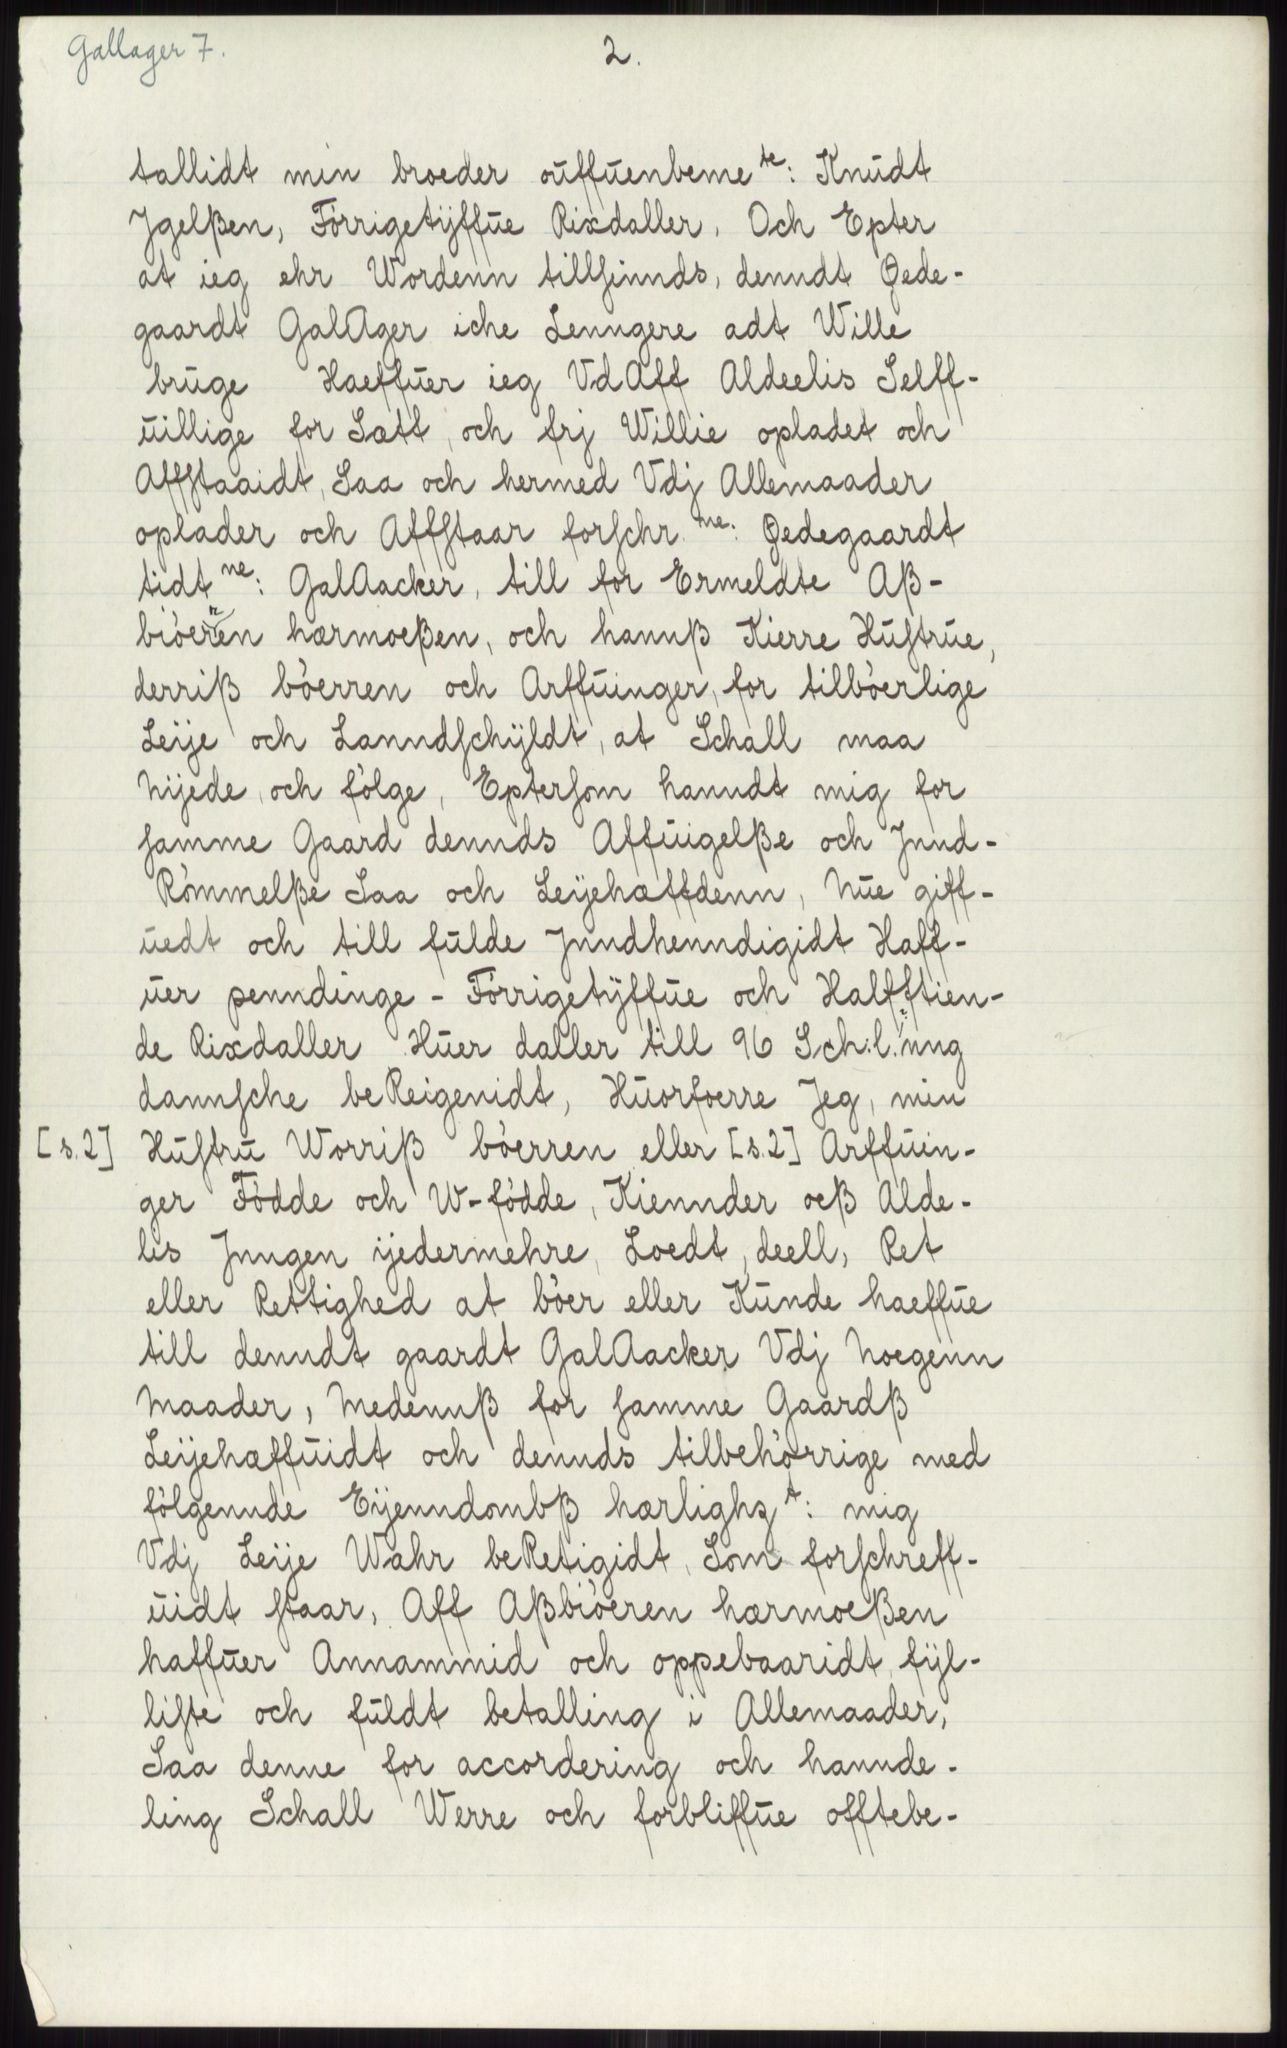 Gallager 7.
2.
tallidt min broeder ouffuenbeme te: Knudt
Jgelßen, Förrigetÿffue Rixdaller, Och Epter
at ieg ehr Wordenn tillsinnds, denndt Øede-
gaardt GalAger iche Lenngere adt Wille
bruge Haeffuer ieg VdAff Aldeelis Selff-
uillige for Sætt, och frj Willie opladet och
Affstaaidt, Saa och hermed Vdj Allemaader
oplader och Affstaar forschr ne: Øedegaardt
tidt ne: GalAacker, till for Ermeldte Aß-
biöeren hærmoeßen, och hannß Kierre Hustrue,
derriß böerren och Arffuinger, for tilböerlige
Leije och Lanndschÿldt, at Schall maa
Nijede, och fölge, Eptersom hanndt mig for
samme Gaard dennds Affuigelße och Jnnd-
Römmelße Saa och Leÿehæffdenn, Nue giff-
uedt och till fulde Jnndhenndigidt Haff-
uer penndinge - Förrigetÿffue och Halfftien-
de Rixdaller Huer daller till 96 Sch:l:inng
dannsche beReigenidt, Huorfoerre Jeg, min
[s.2] Hustru Worriß böerren eller [s.2] Arffuin-
ger Födde och W-födde, Kiennder oeß Alde-
lis Jnngen ijedermehre, Loedt, deell, Ret
eller Rettighed at böer eller Kunde haeffue
till denndt gaardt GalAacker Vdj Noegenn
Maader, Medennß for samme Gaardß
Leÿehæffuidt och dennds tilbehörrige med
fölgennde Eÿenndombß hærlighz t: mig
Vdj Leije Wahr beRetigidt, Som forschreff-
uidt staar, Aff Aßbiöeren hærmoeßen
haffuer Annammid och oppebaaridt, fÿl-
liste och fuldt betalling i Allemaader,
Saa denne for accordering och hannde-
ling Schall Werre och forbliffue offtebe-